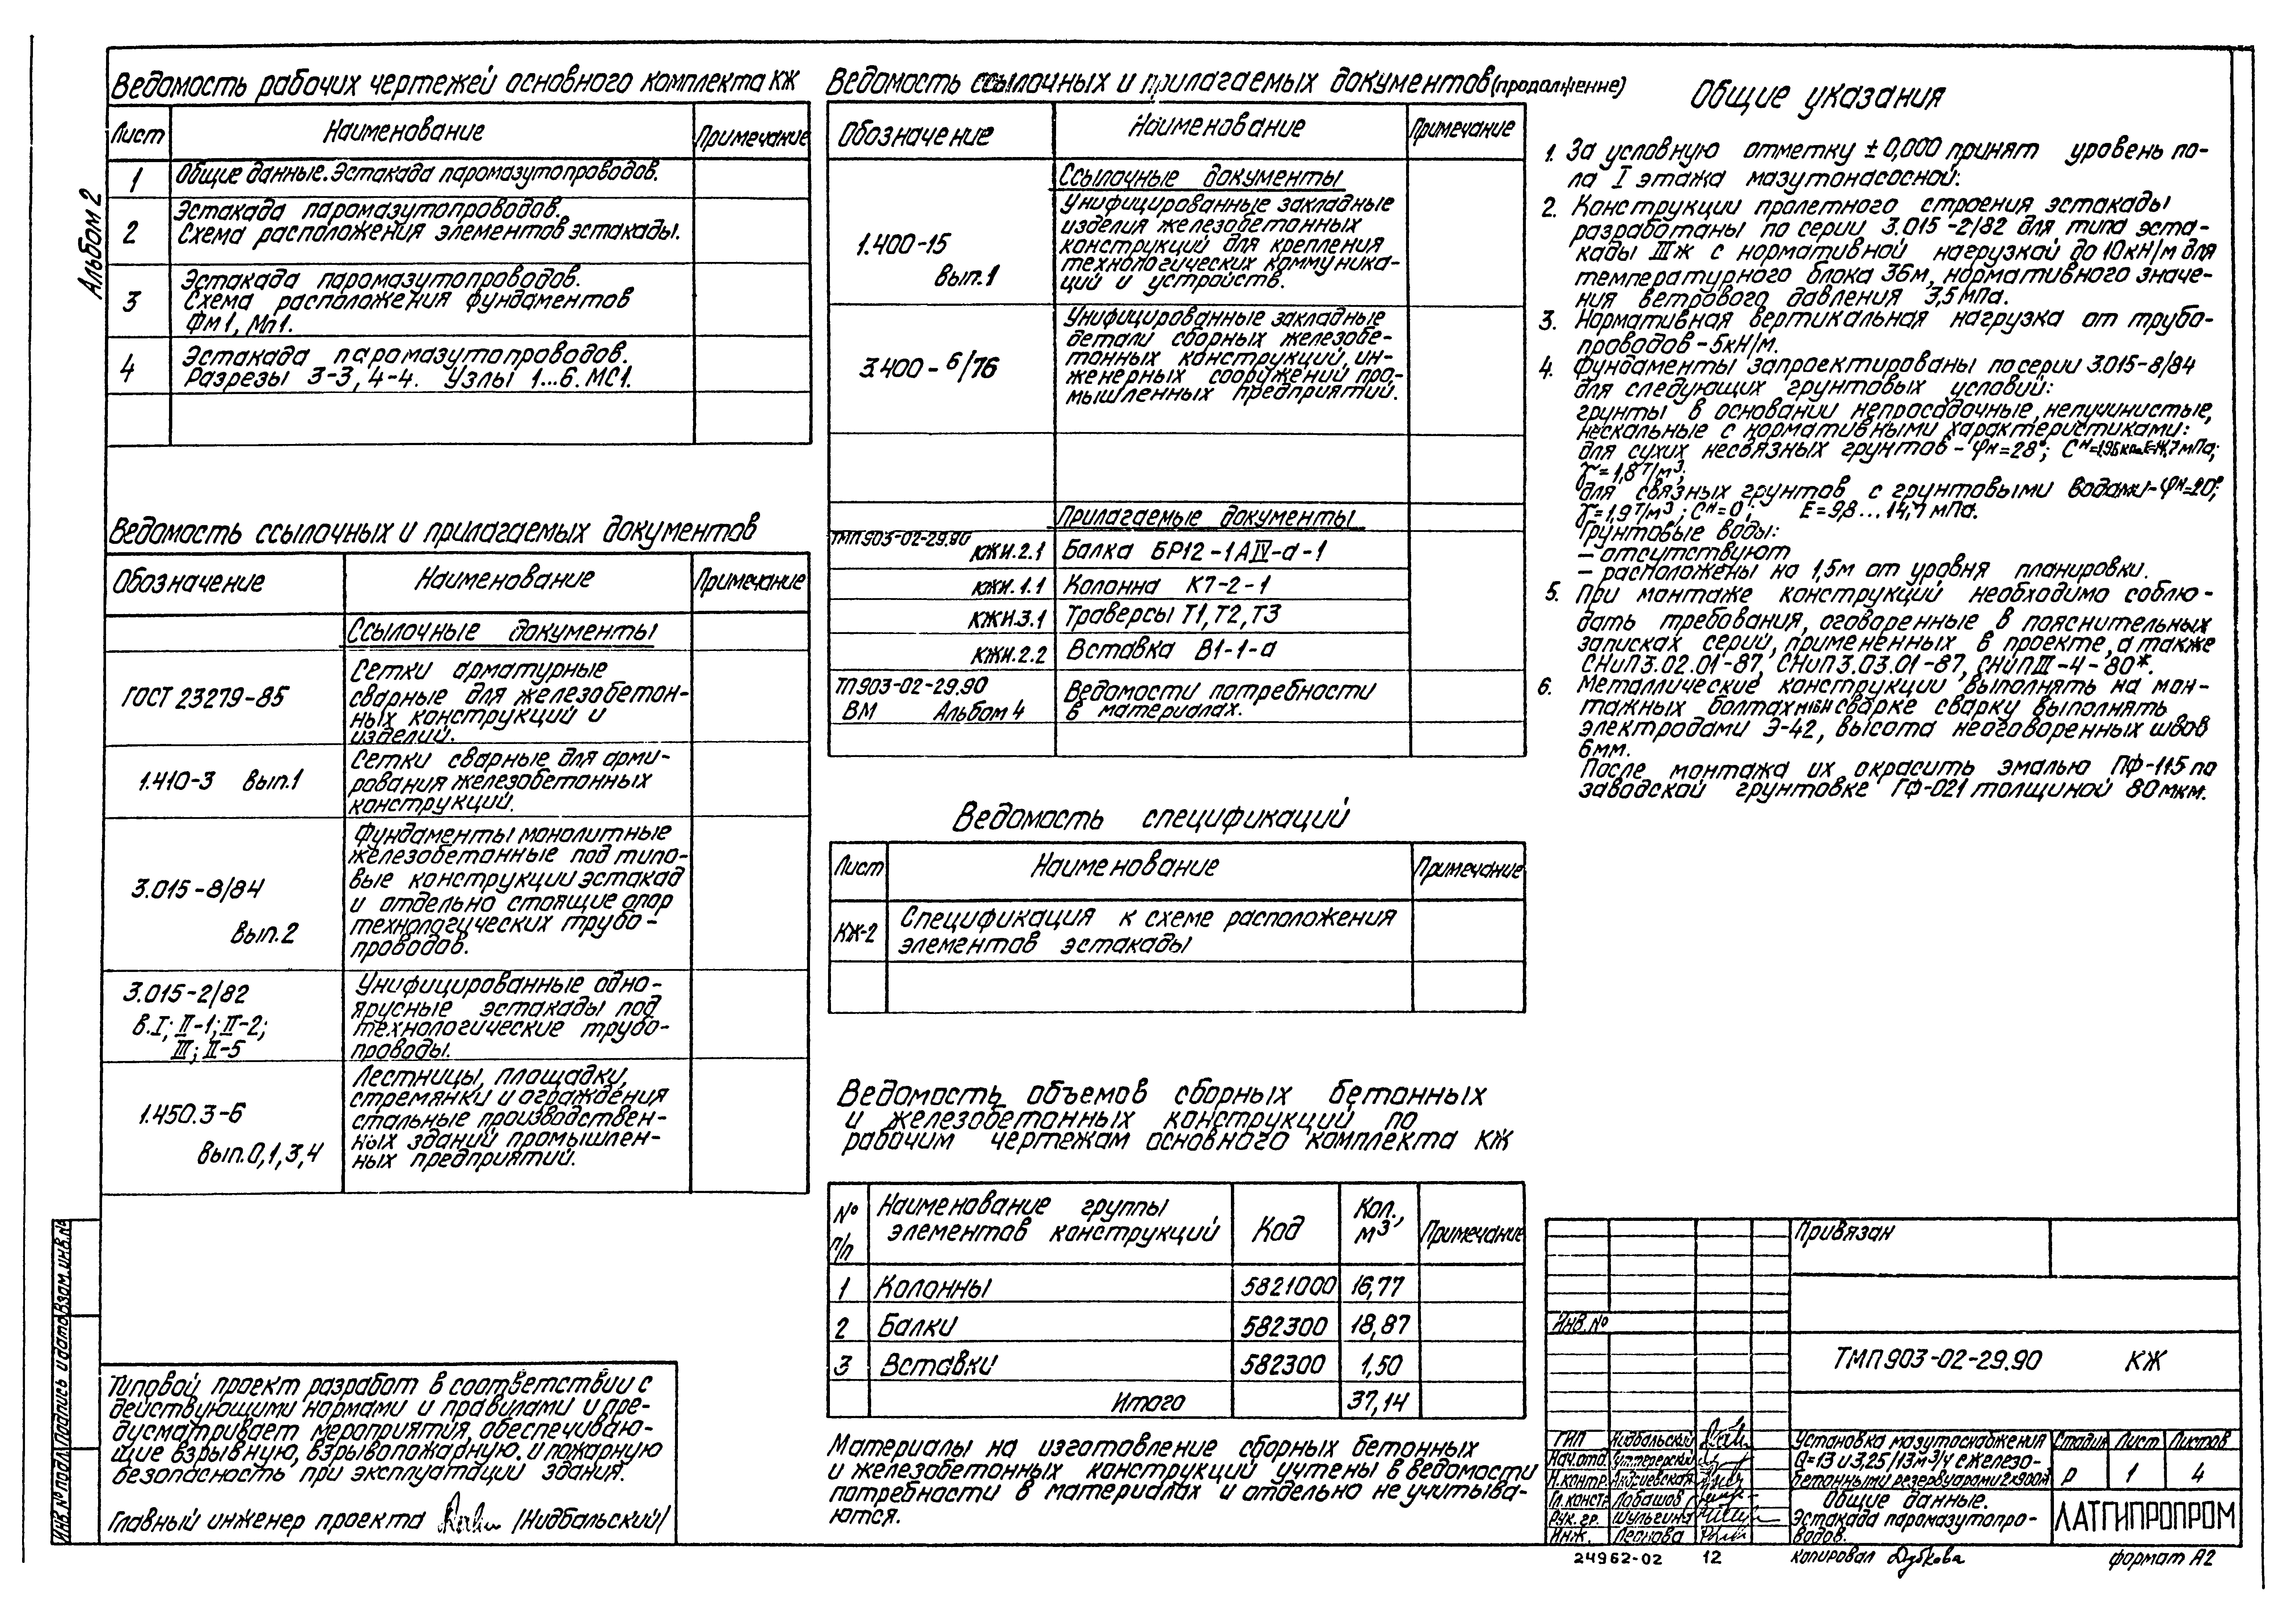 Альбом 2
Ведомость рабочих чертежей основного комплекта КЖ
Лист Наименование Примечание
1 Общие данные. Эстакада паромазутопроводов.
2 Эстакада паромазутопроводов.
Схема расположения элементов эстакады.
3 Эстакада паромазутопроводов.
Схема расположения фундаментов
Фм1, Мп1.
4 Эстакада паромазутопроводов.
Разрезы 3-3, 4-4. Узлы 1...6. МС1.
Ведомость ссылочных и прилагаемых документов
Обозначение Наименование Примечание
Ссылочные документы
ГОСТ 23279-85 Сетки арматурные
сварные для железобетон-
ных конструкций и
изделий.
1.410-3 вып.1 Сетки сварные для арми-
рования железобетонных
конструкций.
3.015-8/84 вып.2 Фундаменты монолитные
железобетонные под типо-
вые конструкции эстакад
и отдельно стоящие опор
технологических трубо-
проводов.
3.015-2/82 Унифицированные одно-
в.I; II-1; II-2; ярусные эстакады под
III; II-5 технологические трубо-
проводы.
1.450.3-6 Лестницы, площадки,
стремянки и ограждения
стальные производствен-
вып.0,1,3,4 ных зданий промышлен-
ных предприятий.
Типовой проект разработ в соответствии с
действующими нормами и правилами и пре-
дусматривает мероприятия, обеспечиваю-
щие взрывную, взрывопожарную и пожарную
безопасность при эксплуатации здания.
Главный инженер проекта /Нидбальский/
Инв. № подл. Подпись и дата Взам. инв. №
Ведомость ссылочных и прилагаемых документов (продолжение)
Обозначение Наименование Примечание
Ссылочные документы
1.400-15 вып.1 Унифицированные закладные
изделия железобетонных
конструкций для крепления
технологических коммуника-
ций и устройств.
3.400-6/76 Унифицированные закладные
детали сборных железобе-
тонных конструкций ин-
женерных сооружений про-
мышленных предприятий.
Прилагаемые документы
ТМП.903-02-29.90
КЖИ.2.1 Балка БР12-1АIV-а-1
КЖИ.1.1 Колонна К7-2-1
КЖИ.3.1 Траверсы Т1, Т2, Т3
КЖИ.2.2 Вставка В1-1-а
ТП 903-02-29.90 Ведомости потребности
ВМ Альбом 4 в материалах.
Ведомость спецификаций
Лист Наименование Примечание
КЖ-2 Спецификация к схеме расположения
элементов эстакады
Ведомость объемов сборных бетонных
и железобетонных конструкций по
рабочим чертежам основного комплекта КЖ
№ п/п Наименование группы элементов конструкций Код Кол., м3 Примечание
1 Колонны 5821000 16,77
2 Балки 582300 18,87
3 Вставки 582300 1,50
Итого 37,14
Материалы на изготовление сборных бетонных
и железобетонных конструкций учтены в ведомости
потребности в материалах и отдельно не учитыва-
ются.
Общие указания
1. За условную отметку ±0,000 принят уровень по-
ла I этажа мазутонасосной.
2. Конструкции пролетного строения эстакады
разработаны по серии 3.015-2/82 для типа эста-
кады IIIж с нормативной нагрузкой до 10кН/м для
температурного блока 36м, нормативного значе-
ния ветрового давления 3,5 мПа.
3. Нормативная вертикальная нагрузка от трубо-
проводов-5кН/м.
4. Фундаменты запроектированы по серии 3.015-8/84
для следующих грунтовых условий:
грунты в основании непросадочные, непучинистые,
нескальные с нормативными характеристиками:
для сухих несвязных грунтов - φн=28°; Cн=1,96 кПа E=14,7 мПа;
γ=1,8т/м3.
для связных грунтов с грунтовыми водами-φн=20°;
γ=1,9т/м3; Cн=0; E=9,8...14,7 мПа.
Грунтовые воды:
- отсутствуют
- расположены на 1,5м от уровня планировки.
5. При монтаже конструкций необходимо соблю-
дать требования, оговоренные в пояснительных
записках серий, примененных в проекте, а также
СНиП 3.02.01-87, СНиП 3.03.01-87, СНиП III-4-80*.
6. Металлические конструкции выполнять на мон-
тажных болтах сварке сварку выполнять
электродами Э-42, высота неоговоренных швов
6мм.
После монтажа их окрасить эмалью ПФ-115 по
заводской грунтовке ГФ-021 толщиной 80 мкм.
Привязан
Инв. №
ТМП 903-02-29.90 КЖ
ГИП Нидбальский
Нач.отд.
Н.контр. Андриевская
Гл.констр. Лобашов
Рук. гр. Шульгина
Инж. Леонова
Установка мазутоснабжения
Q=13 и 3,25/13м3/ч с железо-
бетонными резервуарами 2х900м
Стадия Лист Листов
Р 1 4
Общие данные.
Эстакада паромазутопро-
водов.
ЛАТГИПРОПРОМ
24962-02 12 копировал Дубкова формат А2